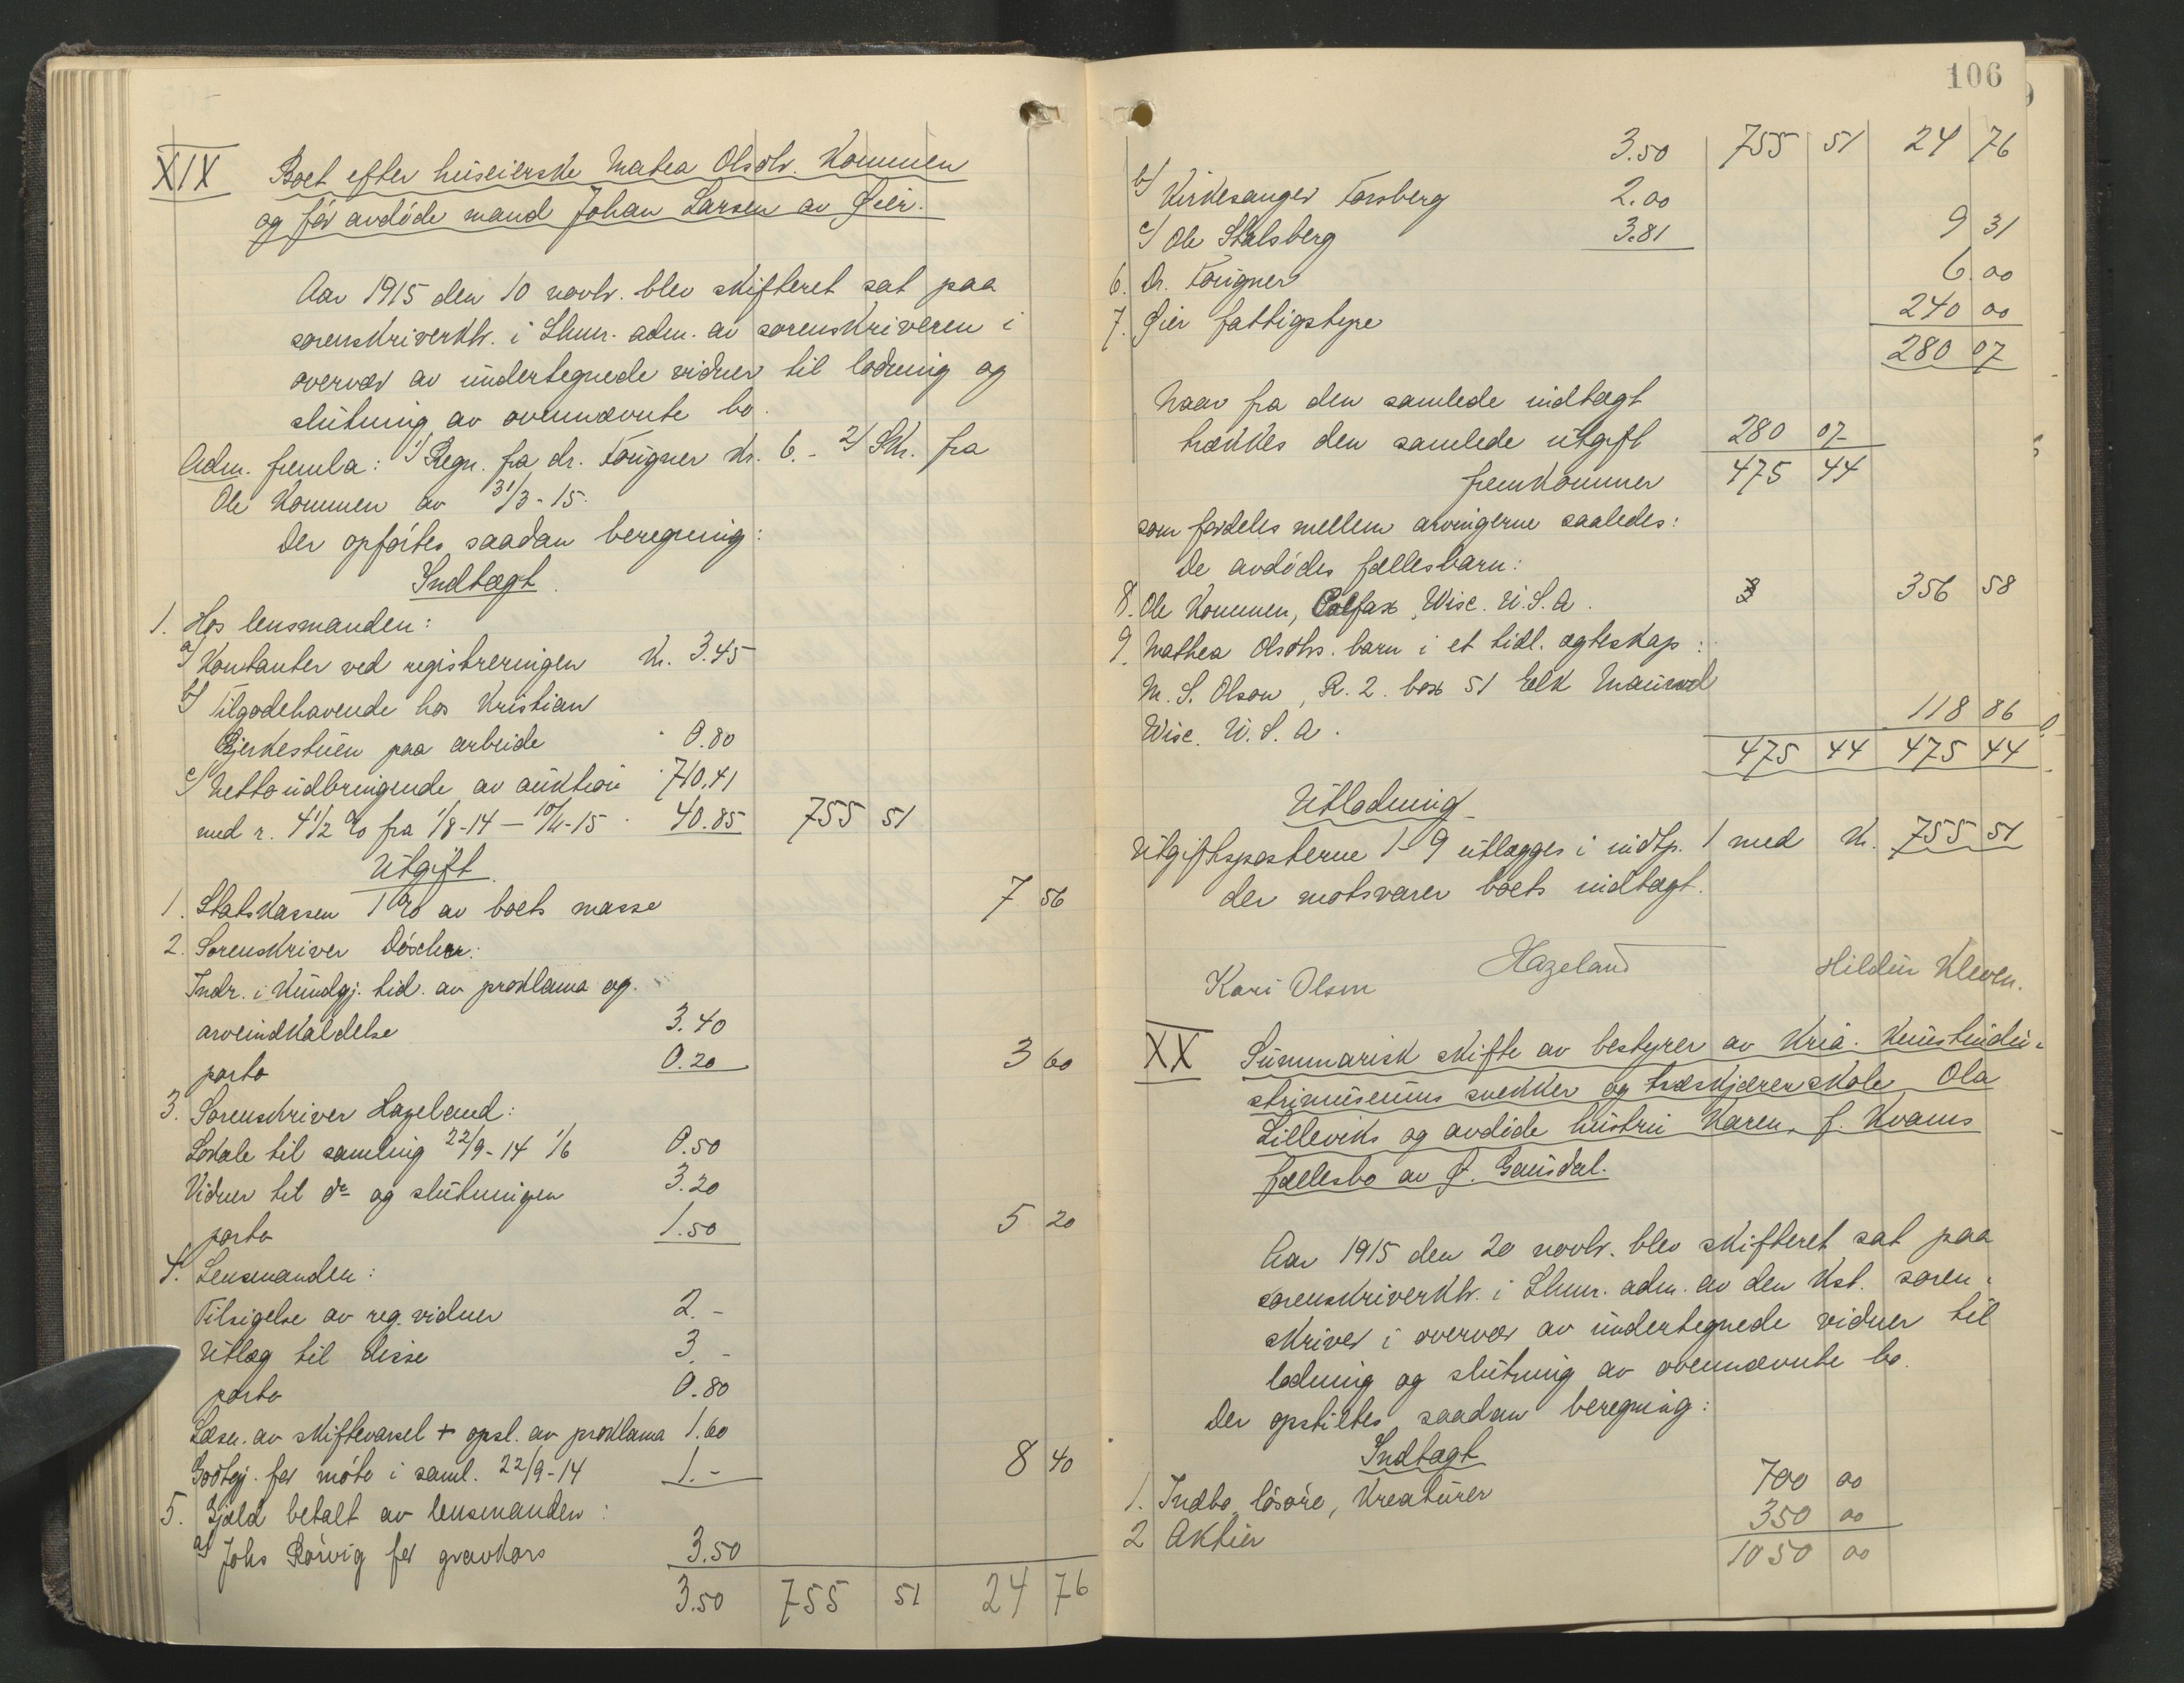 XIX Boet efter huseierske Matea Olsdtr. Kommen
og før avdøde mand Johan Larsen av Øier.
Aar 1915 den 10 novbr. blev skifteret sat paa
sorenskriverktr. i Lhmr. adm. av sorenskriveren i
overvær av undertegnede vidner til lodning og
slutning av ovennævnte bo.
Adm. fremla: 1) Regn. fra dr. Tougner kr. 6.- 2) Skr. fra
Ole Kommen av 31/3-15.
Der opførtes saadan beregning:
Indtægt.
1. Hos lensmanden:
a) Kontanter ved registreringen kr. 3.45
b) Tilgodehavende hos Kristian
Bjerkestuen paa arbeide " 0.80
c) Nettoudbringende av auktion " 710.41
med r. 4 1/2 % fra 1/8-14 — 10/11-15 " 40.85 755 51
Utgift.
1. Statskassen 1 % av boets masse 7 56
2. Sorenskriver Döscher:
Indr. i Kundgj. tid. av proklama og
arveindkaldelse 3.40
porto 0.20 3 60
3. Sorenskriver Hazeland:
Lokale til samling 22/9-14 1/6 0.50
Vidner til do og slutningen 3.20
porto 1.50 5 20
4. Lensmanden:
Tilsigelse av reg. vidner 2.-
Utlæg til disse 3.-
porto 0.80
Læsn. av skiftevarsel + opsl. av proklama 1.60
Godtgj. for møte i saml. 22/9-14 1.- 8 40
5. Gjæld betalt av lensmanden:
a) Johs Rørvig for gravkors 3.50
3.50 755 51 24 76
106
3.50 755 51 24 76
b) Kirkesanger Forsberg 2.00
c) Ole Stalsberg 3.81 9 31
6. Dr. Tougner 6.00
7. Øier fattigstyre 240 00
280 07
Naar fra den samlede indtægt
trækkes den samlede utgift 280 07
fremkommer 475 44
som fordeles mellem arvingerne saaledes:
De avdødes fællesbarn:
8. Ole Kommen, Colfax, Wisc. U.S.A. 356 58
9. Mathea Olsdtrs. barn i et tidl. ægteskap:
M. S. Olson, R. 2. box 51 Eelk Maunod
Wisc. U.S.A. 118 86
475 44 475 44
Utlodning
Utgiftsposterne 1-9 utlægges i indtp. 1 med kr. 755 51
der motsvarer boets indtægt.
Hazeland
Kari Olsen Hildur Kleven.
XX Summarisk skifte av bestyrer av Kria. Kunstindu-
strimuseums snekker og træskjærerskole Ola
Lilleviks og avdøde hustru Karen, f. Kvams
fællesbo av Ø. Gausdal.
Aar 1915 den 20 novbr. blev skifteret sat paa
sorenskriverktr. i Lhmr. adm. av den kst. soren-
skriver i overvær av undertegnede vidner til
lodning og slutning av ovennævnte bo.
Der opstiltes saadan beregning:
Indtægt
1. Indbo, løsøre, kreaturer 700 00
2 Aktier 350 00
1050 00